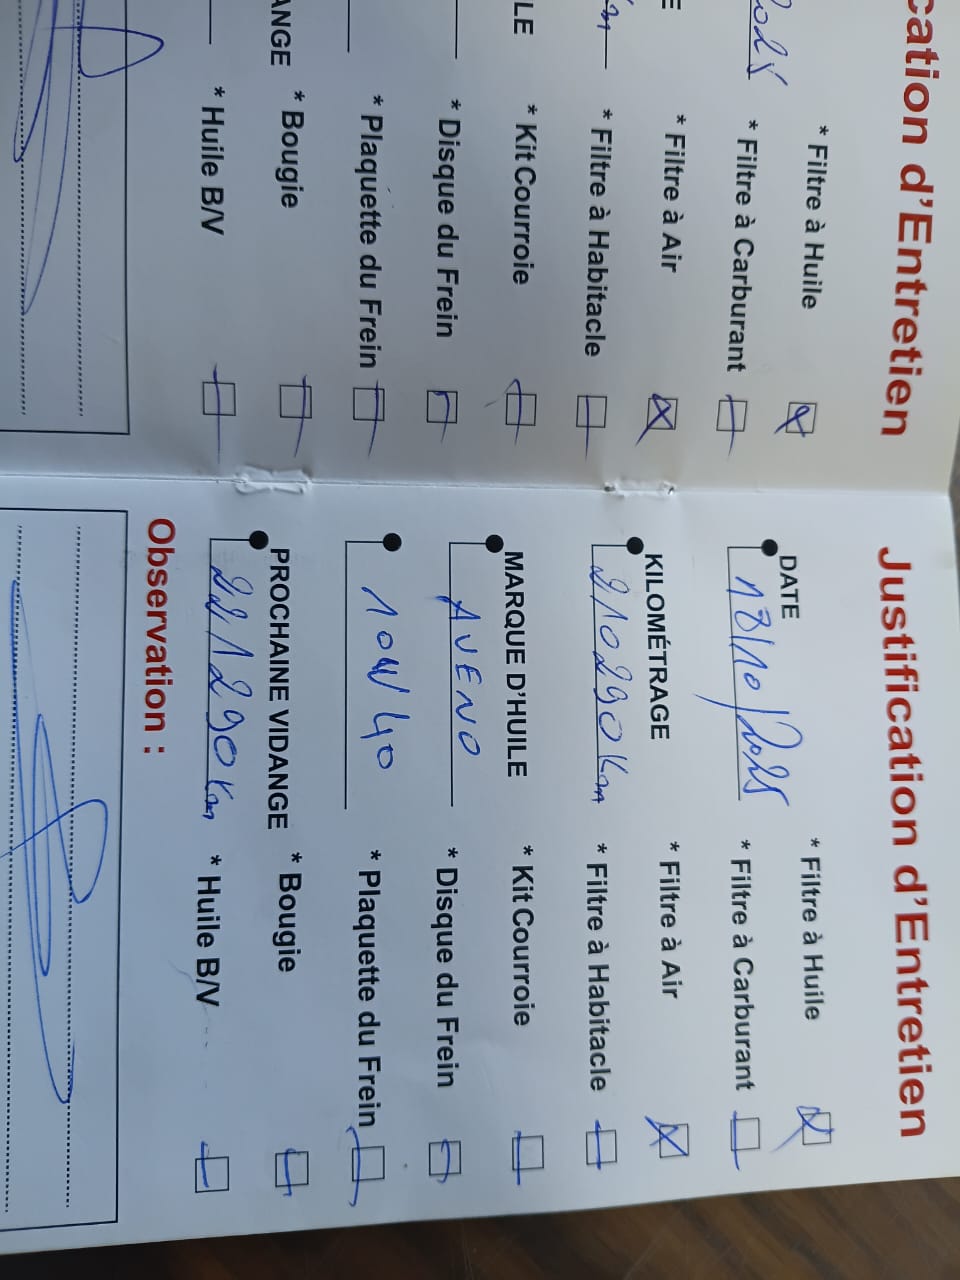 cation d'Entretien
2025
* Filtre à Huile
* Filtre à Carburant
* Filtre à Air
* Filtre à Habitacle
LE
* Kit Courroie
* Disque du Frein
* Plaquétte du Frein
ANGE
* Bougie
* Huile B/V
Justification d'Entretien
DATE
* Filtre à Huile
* Filtre à Carburant
KILOMÉTRAGE
* Filtre à Air
210290 Km
* Filtre à Habitacle
MARQUE D'HUILE
* Kit Courroie
AVENO
* Disque du Frein
10W40
* Plaquette du Frein
PROCHAINE VIDANGE
* Bougie
221290 Km
* Huile B/V
Observation :